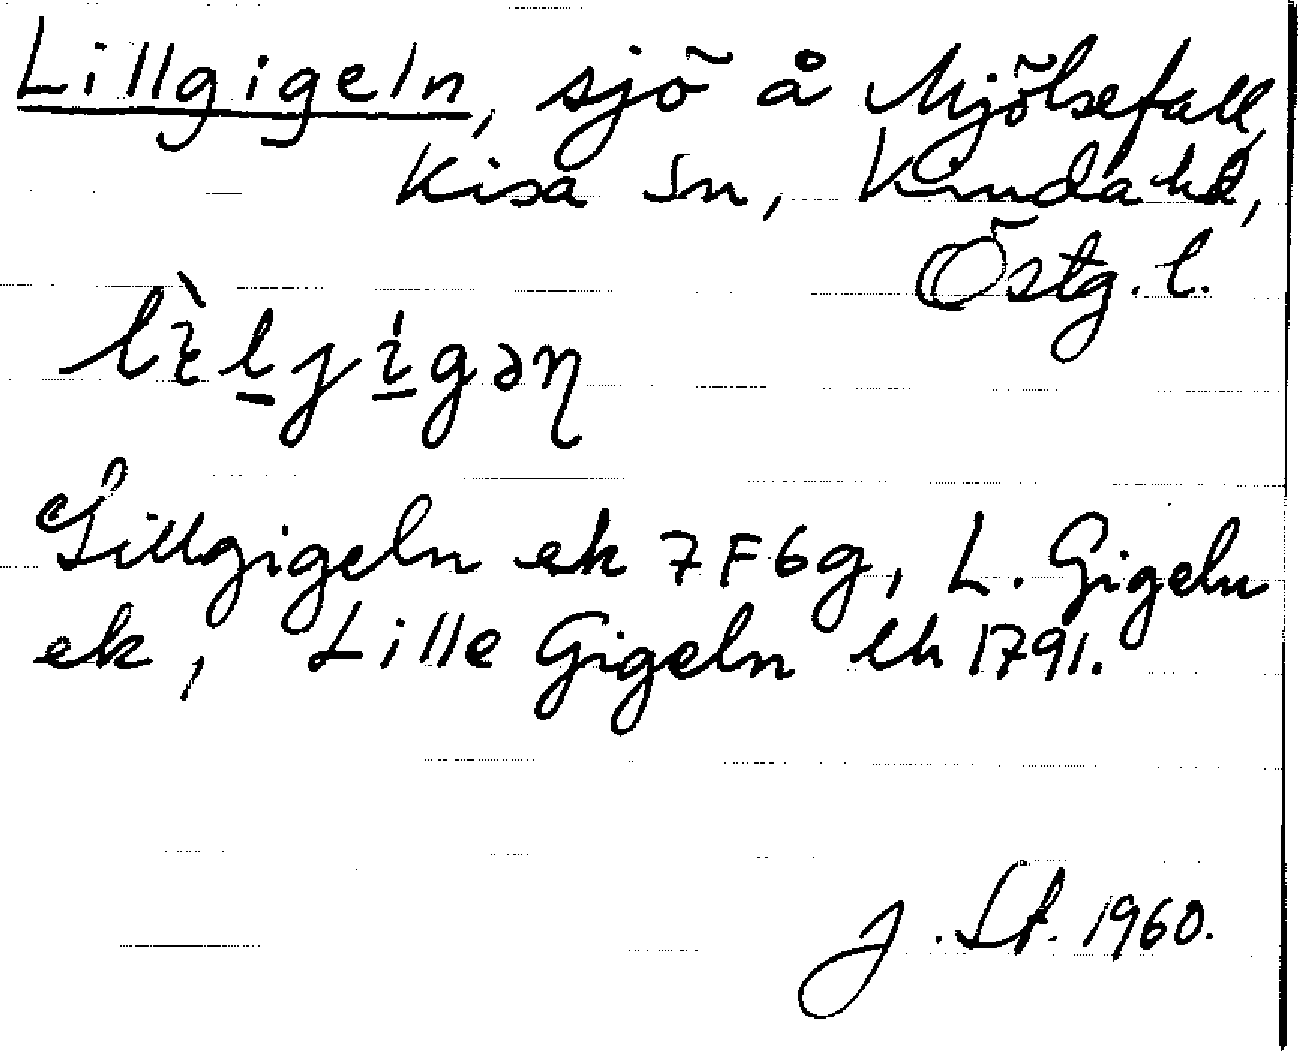 Lillgigeln, sjö å Mjölsefall,
Kisa sn, Kinda hd,
Östg. l.
lìljígən
Lillgigeln ek 7F6g, L. Gigeln
ek, Lille Gigeln lh 1791.
J. St. 1960.